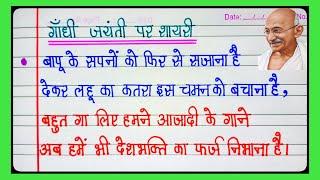 Date: / /
No.
गाँधी जयंती पर शायरी
• बापू के सपनों को फिर से सजाना है
देकर लहू का कतरा इस चमन को बचाना है,
बहुत गा लिए हमने आजादी के गाने
अब हमें भी देशभक्ति का फर्ज निभाना है।